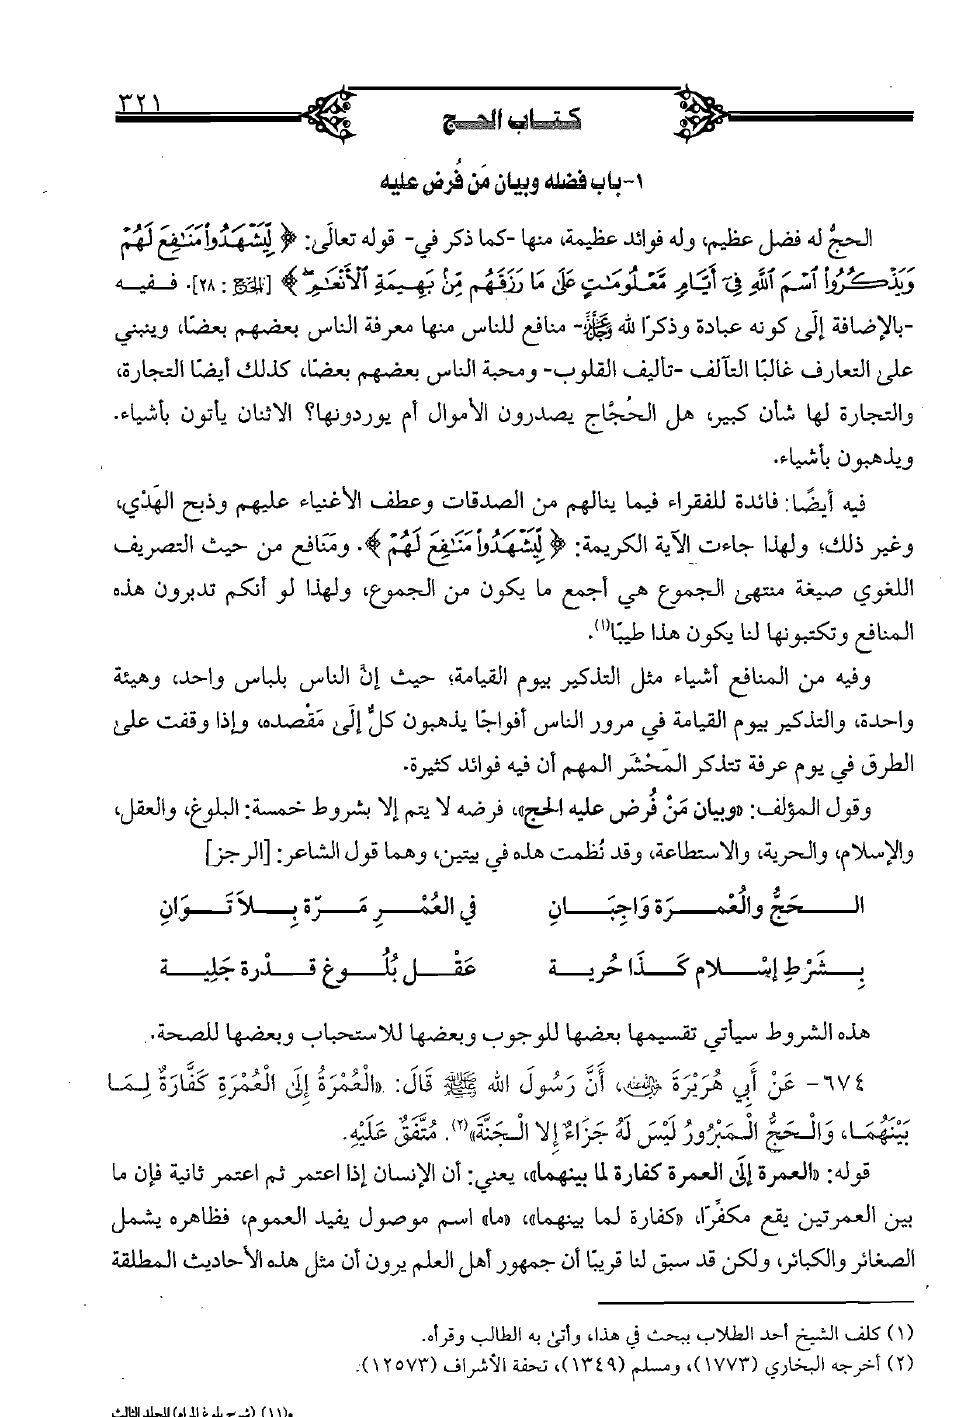 ٣٢١
كتاب الحج
١- باب فضله وبيان مَن فُرض عليه
الحجُّ له فضل عظيم، وله فوائد عظيمة، منها -كما ذكر في- قوله تعالَى: ﴿ لِّيَشْهَدُوا۟ مَنَٰفِعَ لَهُمْ
وَيَذْكُرُوا۟ ٱسْمَ ٱللَّهِ فِىٓ أَيَّامٍ مَّعْلُومَٰتٍ عَلَىٰ مَا رَزَقَهُم مِّنۢ بَهِيمَةِ ٱلْأَنْعَٰمِ ۖ ﴾ [الحج: ٢٨]. ففيه
-بالإضافة إلَى كونه عبادة وذكرًا لله ﷻ- منافع للناس منها معرفة الناس بعضهم بعضًا، وينبني
علىٰ التعارف غالبًا التآلف -تأليف القلوب- ومحبة الناس بعضهم بعضًا، كذلك أيضًا التجارة،
والتجارة لها شأن كبير، هل الحُجَّاج يصدرون الأموال أم يوردونها؟ الاثنان يأتون بأشياء.
ويذهبون بأشياء.
فيه أيضًا: فائدة للفقراء فيما ينالهم من الصدقات وعطف الأغنياء عليهم وذبح الهَدْي،
وغير ذلك؛ ولهذا جاءت الآية الكريمة: ﴿ لِّيَشْهَدُوا۟ مَنَٰفِعَ لَهُمْ ﴾. ومَنافع من حيث التصريف
اللغوي صيغة منتهىٰ الجموع هي أجمع ما يكون من الجموع، ولهذا لو أنكم تدبرون هذه
المنافع وتكتبونها لنا يكون هذا طيبًا(١).
وفيه من المنافع أشياء مثل التذكير بيوم القيامة؛ حيث إنَّ الناس بلباس واحد، وهيئة
واحدة، والتذكير بيوم القيامة في مرور الناس أفواجًا يذهبون كلٌّ إلَى مَقْصده، وإذا وقفت علىٰ
الطرق في يوم عرفة تتذكر المَحْشر المهم أن فيه فوائد كثيرة.
وقول المؤلف: «وبيان مَنْ فُرض عليه الحج»، فرضه لا يتم إلا بشروط خمسة: البلوغ، والعقل،
والإسلام، والحرية، والاستطاعة، وقد نُظمت هذه في بيتين، وهما قول الشاعر: [الرجز]
الحَجُّ والْعُمْرَة وَاجِبَانِ في العُمْرِ مَرّة بِلاَ تَوَانِ
بِشَرْطِ إسْلام كَذَا حُرية عَقْل بُلُوغ قدْرة جَلِية
هذه الشروط سيأتي تقسيمها بعضها للوجوب وبعضها للاستحباب وبعضها للصحة.
٦٧٤- عَنْ أَبِي هُرَيْرَةَ رضي الله عنه، أَنَّ رَسُولَ الله ﷺ قَالَ: «الْعُمْرَةُ إِلَى الْعُمْرَةِ كَفَّارَةٌ لِمَا
بَيْنَهُمَا، وَالْحَجُّ الْمَبْرُورُ لَيْسَ لَهُ جَزَاءٌ إِلا الْجَنَّةَ»(٢). مُتَّفَقٌ عَلَيْهِ.
قوله: «العمرة إلَى العمرة كفارة لما بينهما»، يعني: أن الإنسان إذا اعتمر ثم اعتمر ثانية فإن ما
بين العمرتين يقع مكفَّرًا، «كفارة لما بينهما»، «ما» اسم موصول يفيد العموم، فظاهره يشمل
الصغائر والكبائر، ولكن قد سبق لنا قريبًا أن جمهور أهل العلم يرون أن مثل هذه الأحاديث المطلقة
(١) كلف الشيخ أحد الطلاب ببحث في هذا، وأتىٰ به الطالب وقرأه.
(٢) أخرجه البخاري (١٧٧٣)، ومسلم (١٣٤٩)، تحفة الأشراف (١٢٥٧٣).
و(١١) (شرح بلوغ المرام) المجلد الثالث